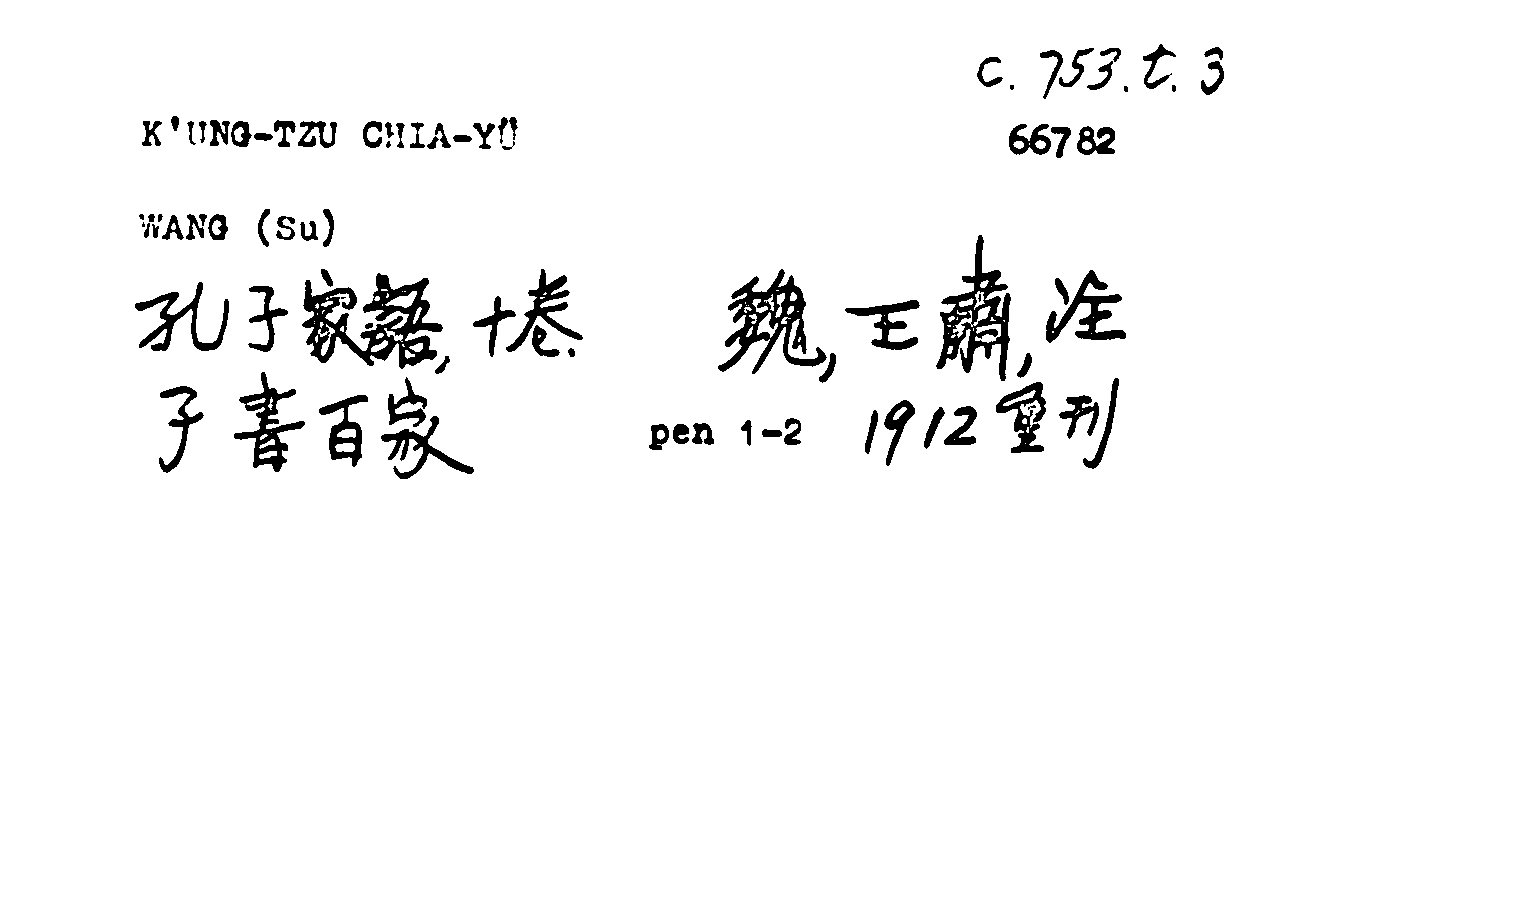 C. 753.t.3
K'UNG-TZU CHIA-YÜ 66782
WANG (Su)
孔子家語, 十卷. 魏, 王肅, 注
子書百家 pen 1-2 1912重刊